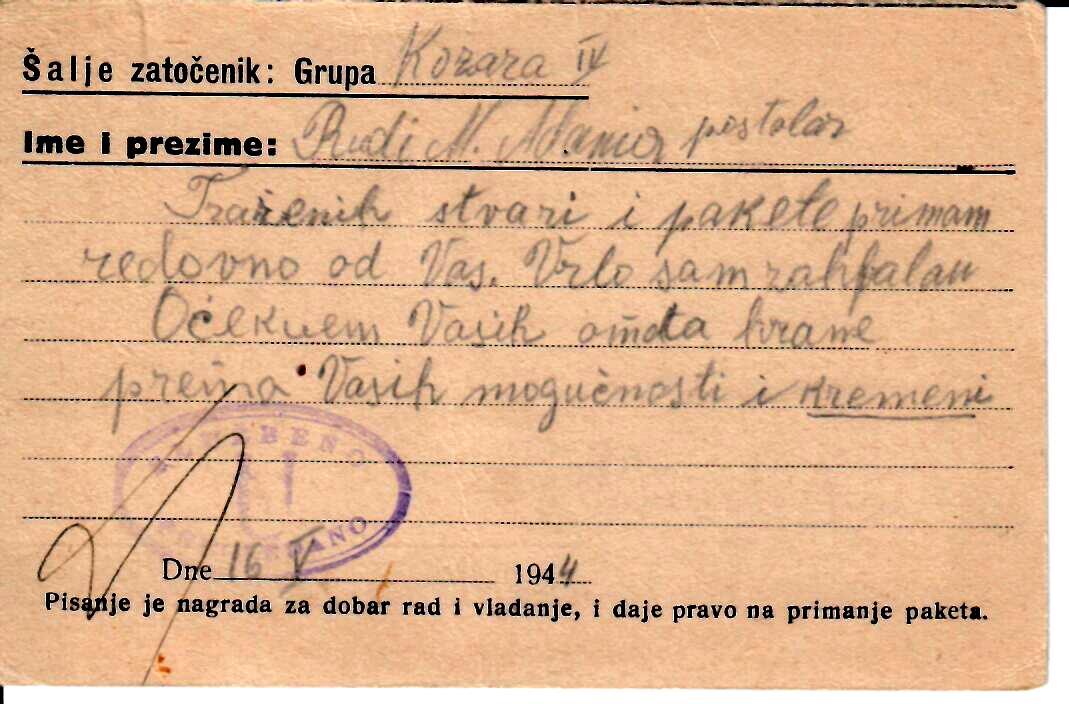 Šalje zatočenik: Grupa Kozara IV
Ime i prezime: Rudi M. postolar
Traženih stvari i pakete primam
redovno od Vas. Vrlo sam zahfalan
Očekuem Vasih hrane
prema Vasih mogučnosti i kremeni
Dne 16 V 1944
Pisanje je nagrada za dobar rad i vladanje, i daje pravo na primanje paketa.